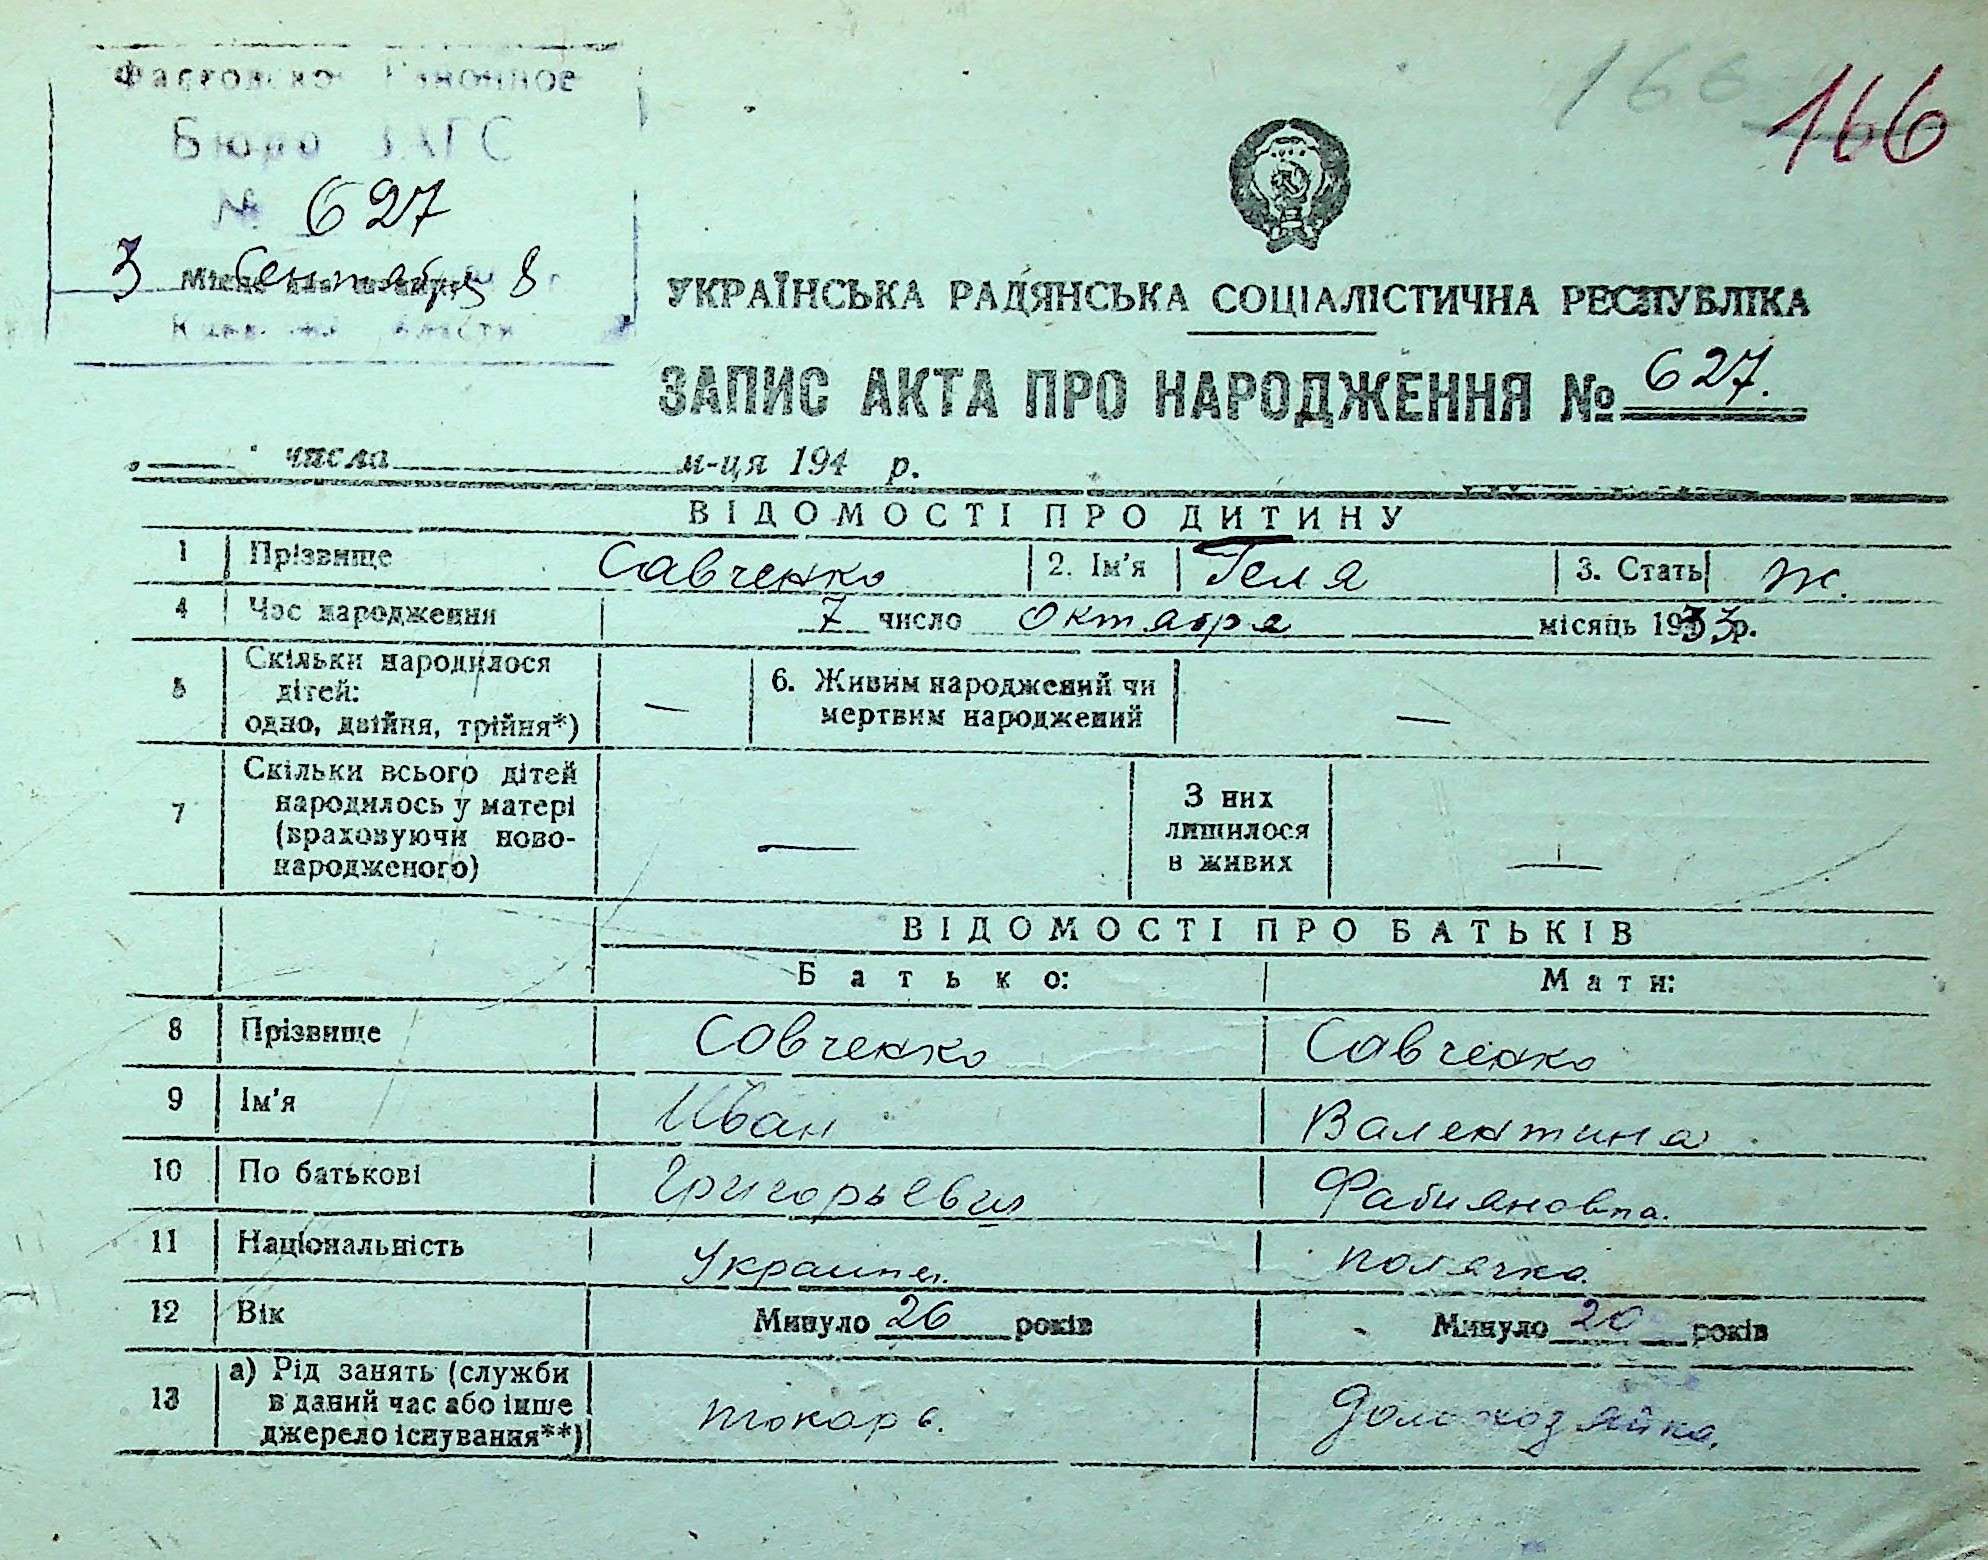 166 166
Бюро ЗАГС
№ 627
3 Сентября 8
УКРАЇНСЬКА РАДЯНСЬКА СОЦІАЛІСТИЧНА РЕСПУБЛІКА
ЗАПИС АКТА ПРО НАРОДЖЕННЯ № 627.
числа м-ця 194 р.
ВІДОМОСТІ ПРО ДИТИНУ
1 Прізвище Савченко 2. Ім'я Геля 3. Стать ж.
4 Час народження 7 число Октября місяць 1933 р.
5 Скільки народилося
дітей:
одно, двійня, трійня*) —
6. Живим народжений чи
мертвим народжений —
7 Скільки всього дітей
народилось у матері
(враховуючи ново-
народженого) —
З них
лишилося
в живих —
ВІДОМОСТІ ПРО БАТЬКІВ
Батько: Мати:
8 Прізвище Савченко Савченко
9 Ім'я Иван Валентина
10 По батькові Григорьевич Фабияновна.
11 Національність Украинец. полячка
12 Вік Минуло 26 років Минуло 20 років
13 а) Рід занять (служби
в даний час або інше
джерело існування**) токарь. Домохозяйка.